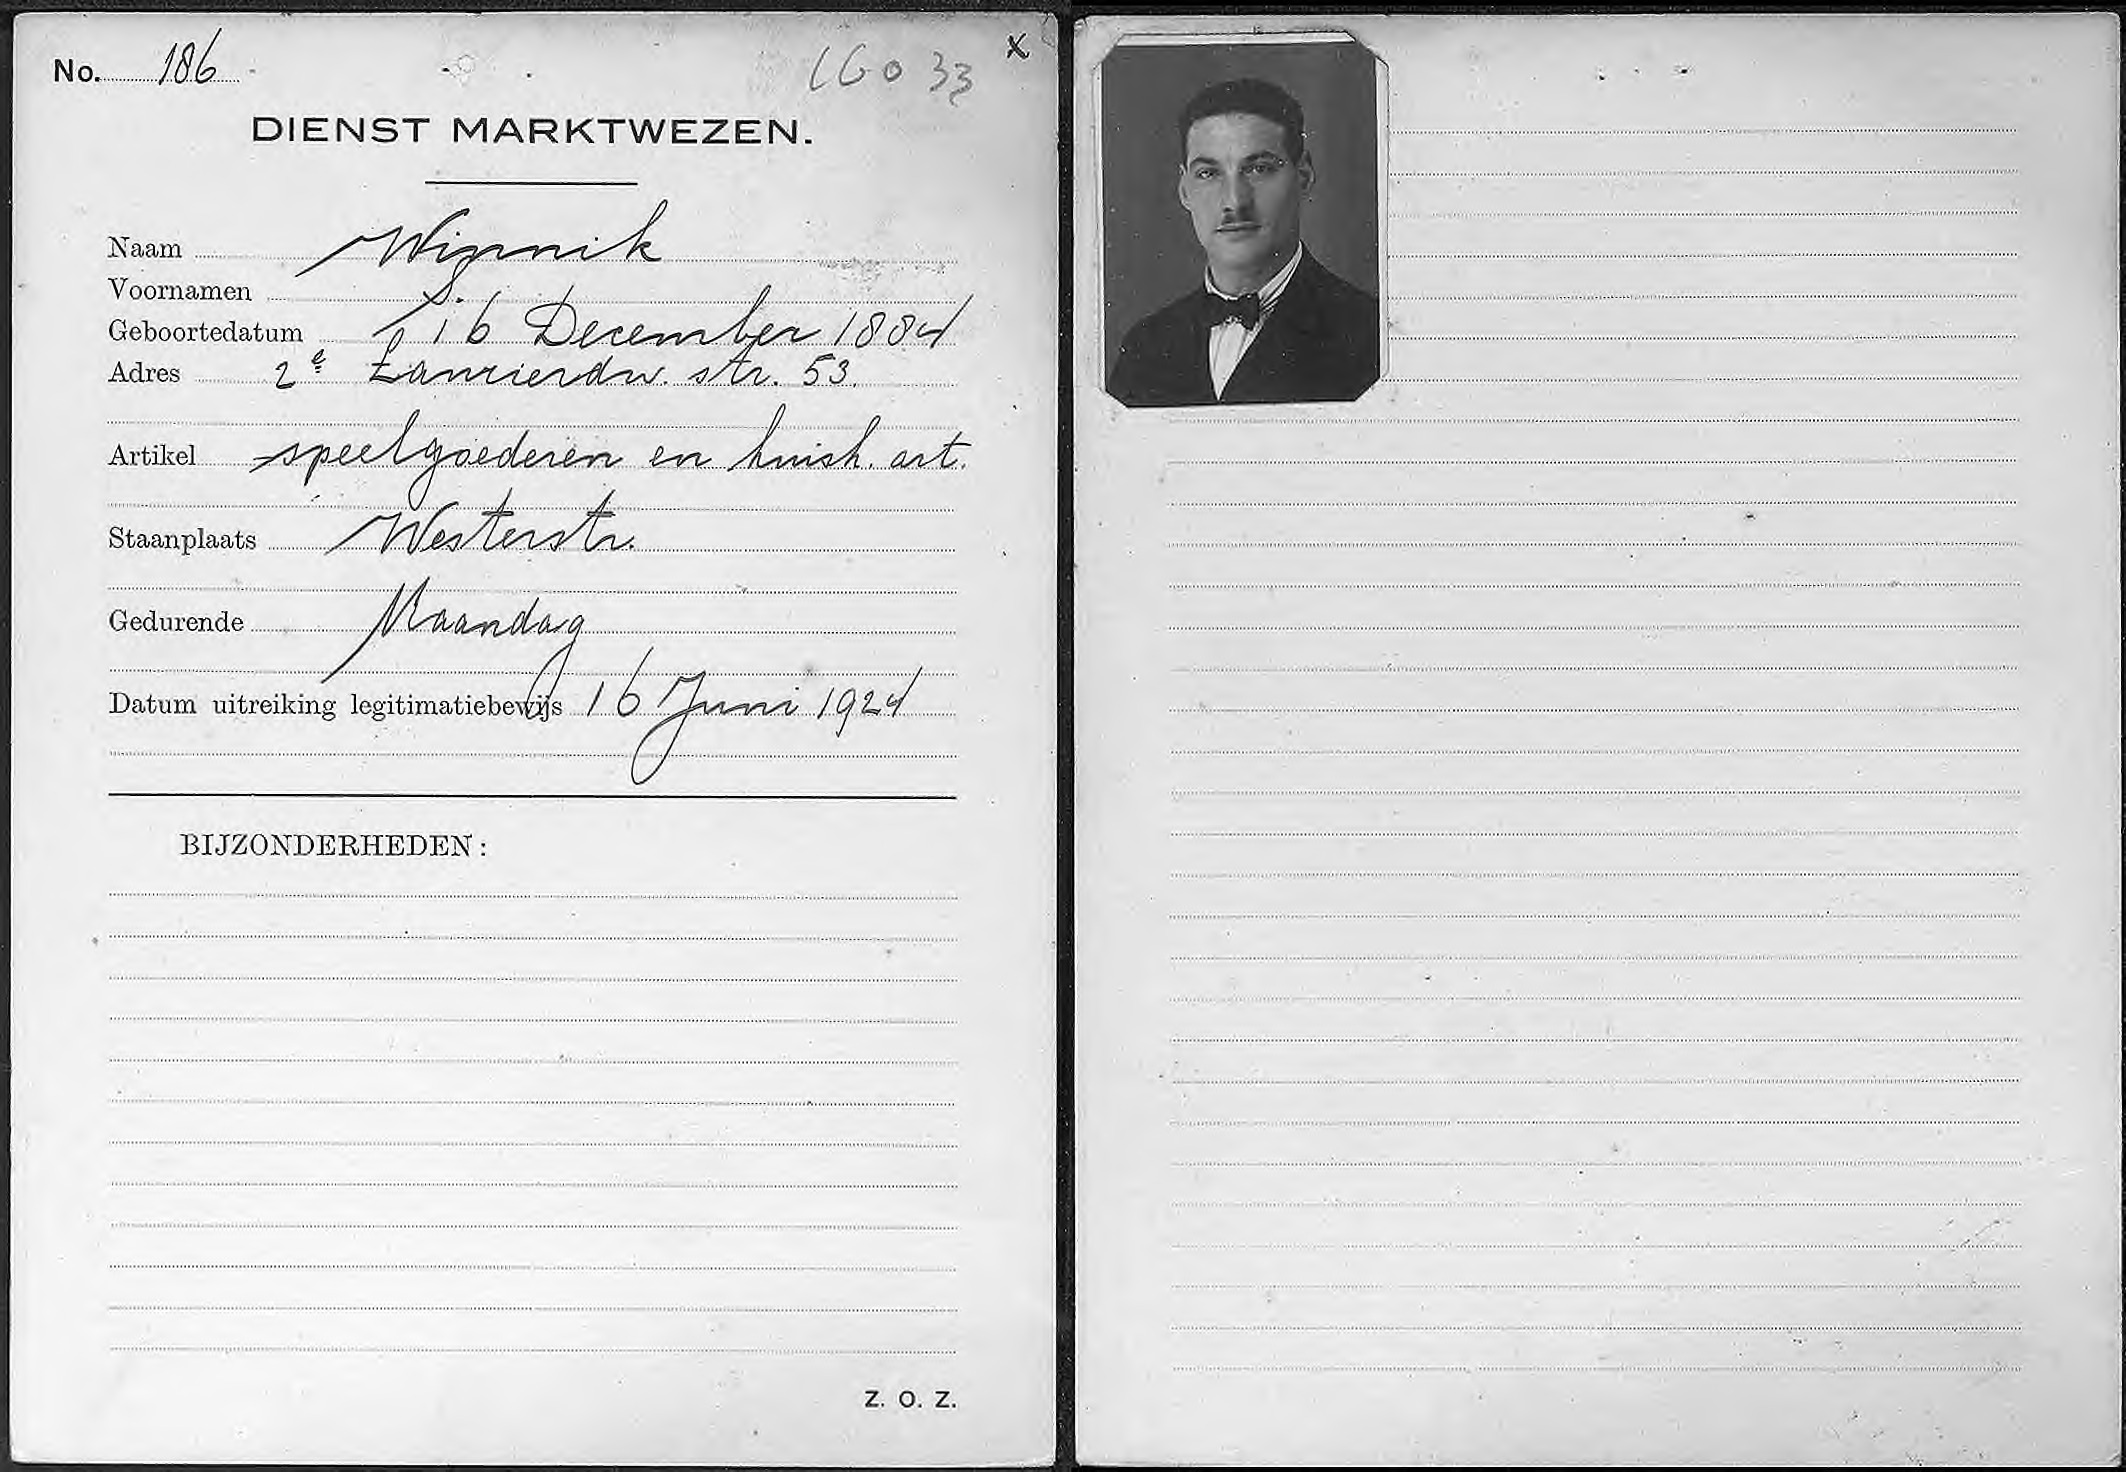 No. 186
x
DIENST MARKTWEZEN.
Naam Winnik
Voornamen S.
Geboortedatum 16 December 1884
Adres 2e Laurierdw. str. 53.
Artikel speelgoederen en huish. art.
Staanplaats Westerstr.
Gedurende Maandag
Datum uitreiking legitimatiebewijs 16 Juni 1924
BIJZONDERHEDEN:
Z. O. Z.